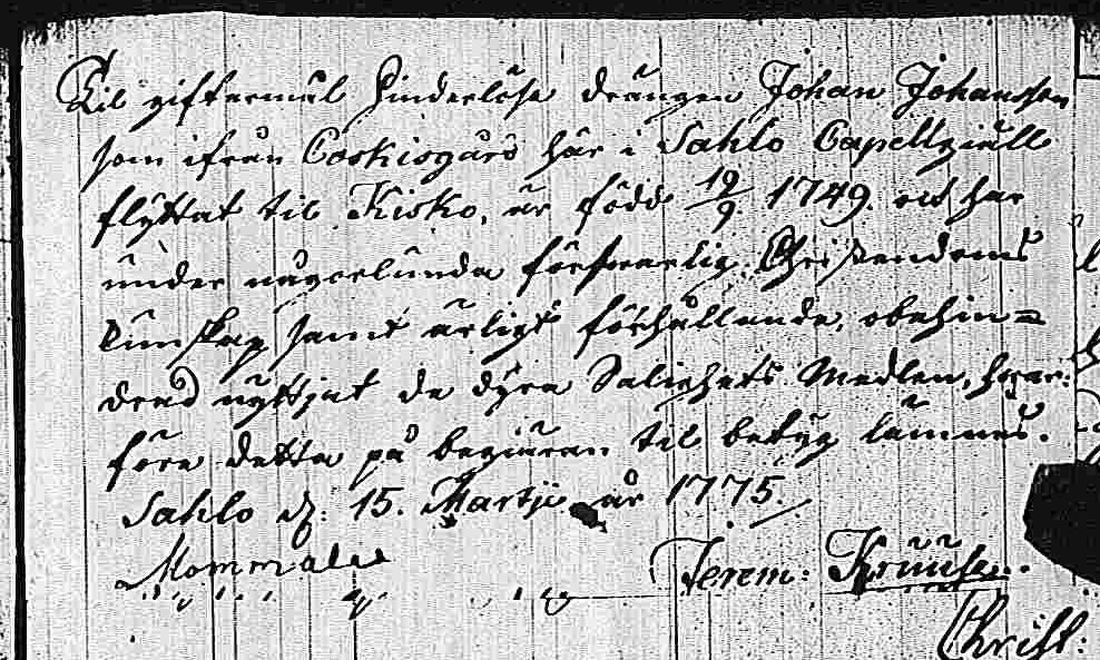 Til giftermål hinderlöse drängen Johan Johansson
som ifrån Coskisgård här i Sahlo Capellgiäll
flyttat til Kisko, är född 19/9 1749. och har
under någorlunda försvarlig Christendoms
kunskap samt ärligt förhållande, obehin=
drad nyttjat de dyra Salighets Medlen, hvar:
före detta på begiäran til betyg lämnas.
Sahlo d. 15. Martji år 1775.
Jerem: Kruuse.
Christ: